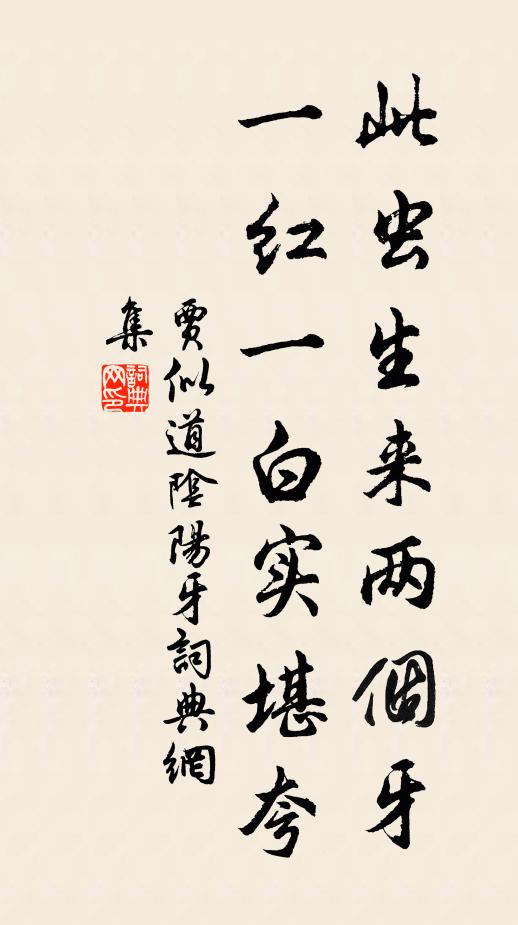 此虫生来两個牙
一红一白实堪夸
賈似道陰陽牙詞典網
集
詞典
网印